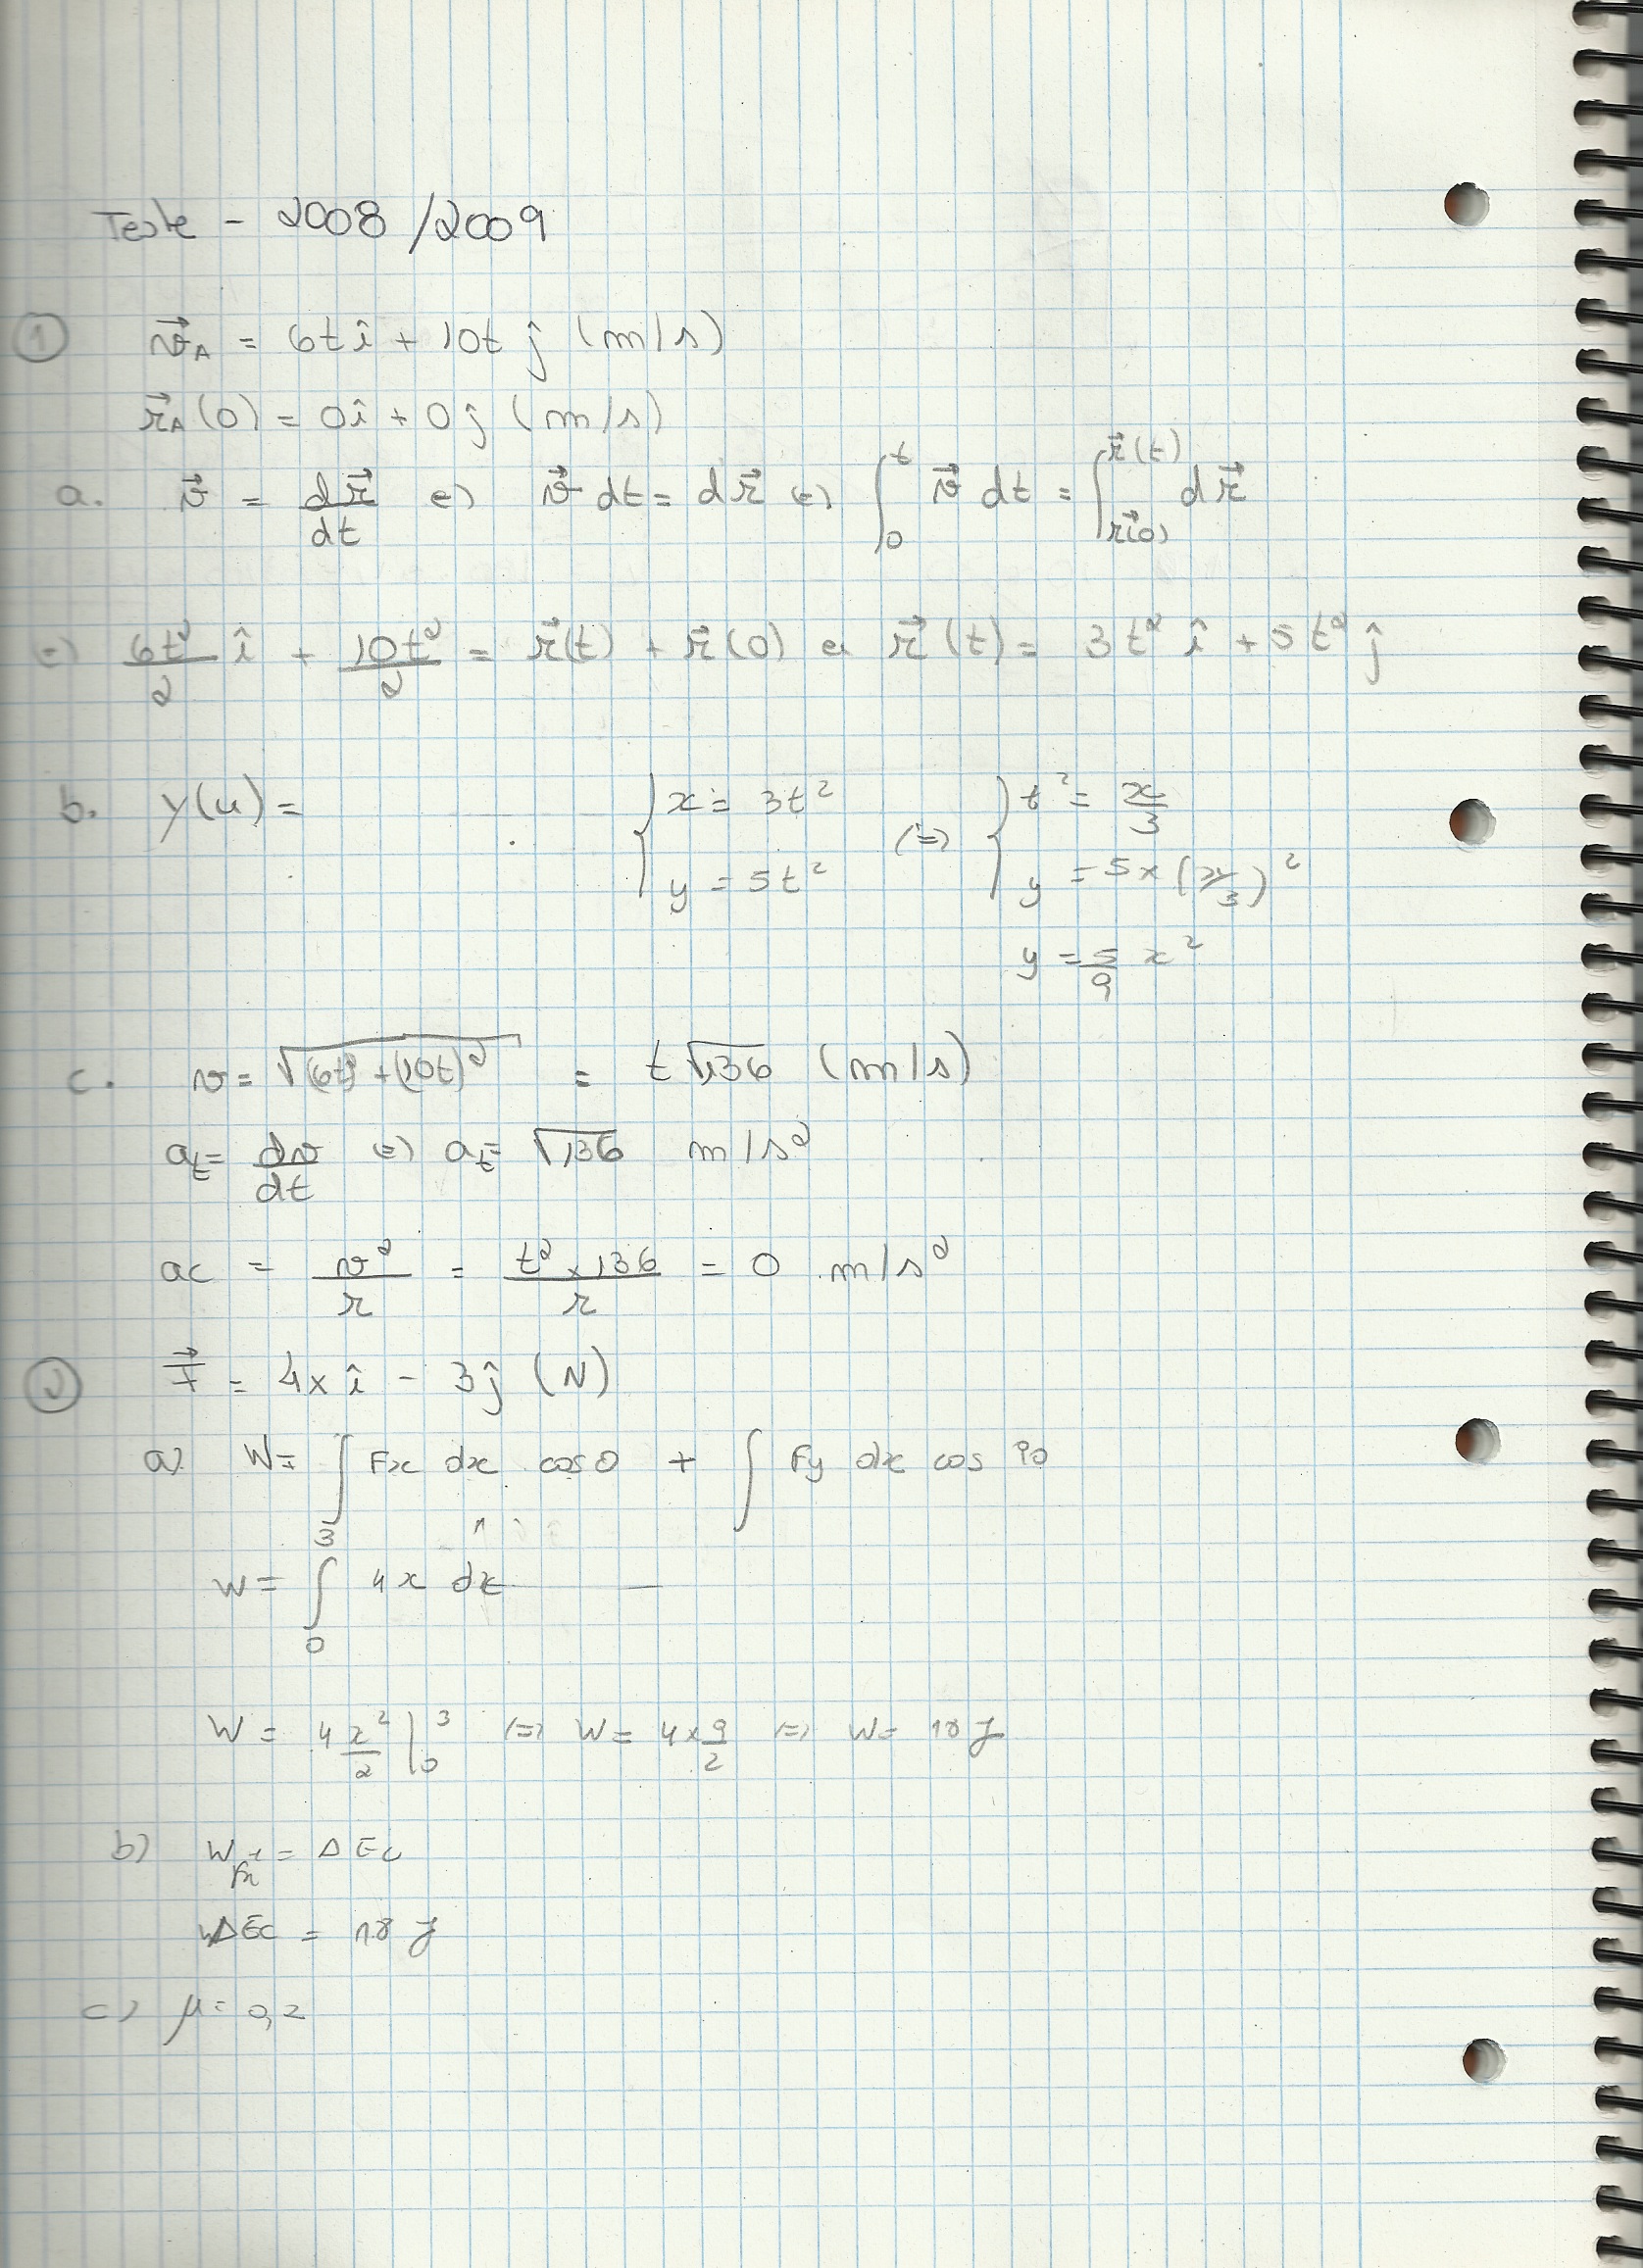 Teste - 2008/2009
① v⃗_A = 6t î + 10t ĵ (m/s)
r⃗_A(0) = 0î + 0ĵ (m/s)
a. v⃗ = dr⃗/dt ⇔ v⃗ dt = dr⃗ ⇔ ∫₀ᵗ v⃗ dt = ∫_{r⃗(0)}^{r⃗(t)} dr⃗
⇔ 6t²/2 î + 10t²/2 = r⃗(t) + r⃗(0) ⇔ r⃗(t) = 3t² î + 5t² ĵ
b. y(x) = { x = 3t² ⇔ { t² = x/3
y = 5t² y = 5×(x/3)²
y = 5/9 x²
c. v = √((6t)² + (10t)²) = t√136 (m/s)
a_t = dv/dt ⇔ a_t = √136 m/s²
ac = v²/r = t²×136/r = 0 m/s²
② F⃗ = 4x î - 3ĵ (N)
a) W = ∫ Fx dx cos 0 + ∫ Fy dx cos 90
W = ∫₀³ 4x dx —
W = 4 x²/2 |₀³ ⇔ W = 4×9/2 ⇔ W = 18 J
b) W_{F⃗r} = ΔEc
ΔEc = 18 J
c) μ = 0,2